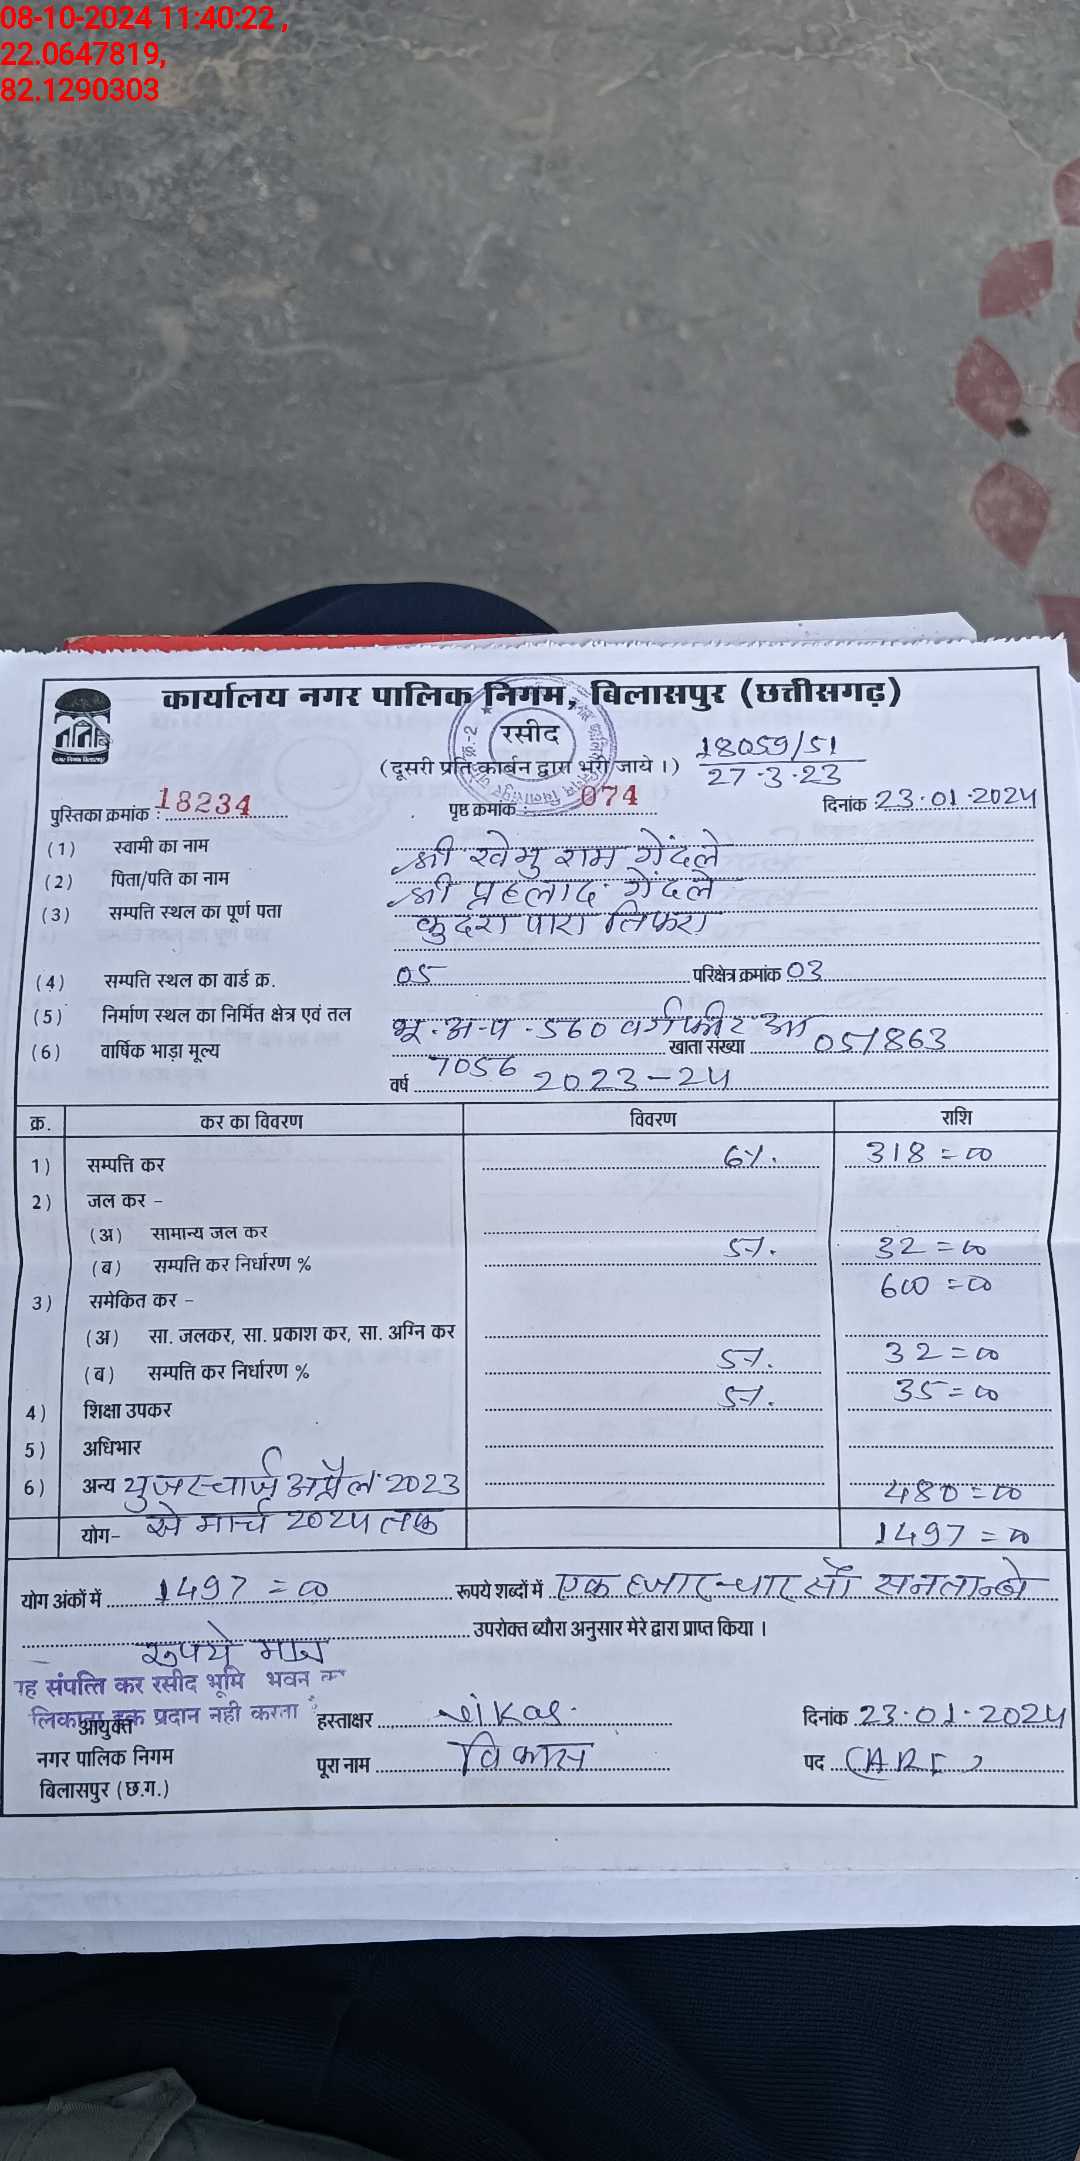 08-10-2024 11:40:22 ,
22.0647819,
82.1290303
कार्यालय नगर पालिक निगम, बिलासपुर (छत्तीसगढ़)
रसीद
(दूसरी प्रति कार्बन द्वारा भरी जाये ।) 18059/51
27-3-23
पुस्तिका क्रमांक : 18234 पृष्ठ क्रमांक : 074 दिनांक 23-01-2024
(1) स्वामी का नाम श्री खेमु राम गेंदले
(2) पिता/पति का नाम श्री प्रहलाद गेंदले
(3) सम्पत्ति स्थल का पूर्ण पता कुदरा पारा तिफरा
(4) सम्पत्ति स्थल का वार्ड क्र. 05 परिक्षेत्र क्रमांक 03
(5) निर्माण स्थल का निर्मित क्षेत्र एवं तल भू-अ-प-560 वर्गफीट आ
(6) वार्षिक भाड़ा मूल्य 7056 खाता संख्या 051863
वर्ष 2023-24
क्र. कर का विवरण विवरण राशि
1) सम्पत्ति कर 6%. 318=00
2) जल कर -
(अ) सामान्य जल कर
(ब) सम्पत्ति कर निर्धारण % 5%. 32=00
3) समेकित कर - 600=00
(अ) सा. जलकर, सा. प्रकाश कर, सा. अग्नि कर
(ब) सम्पत्ति कर निर्धारण % 5%. 32=00
4) शिक्षा उपकर 5%. 35=00
5) अधिभार
6) अन्य युजरचार्ज अप्रैल 2023 480=00
योग- से मार्च 2024 तक 1497=00
योग अंकों में 1497=00 रूपये शब्दों में एक हजार चार सौ सनतान्बे
रूपये मात्र उपरोक्त ब्यौरा अनुसार मेरे द्वारा प्राप्त किया ।
यह संपत्ति कर रसीद भूमि भवन का
लिकाना हक प्रदान नही करता है
आयुक्त हस्ताक्षर vikas दिनांक 23-01-2024
नगर पालिक निगम पूरा नाम विकास पद (ARI)
बिलासपुर (छ.ग.)